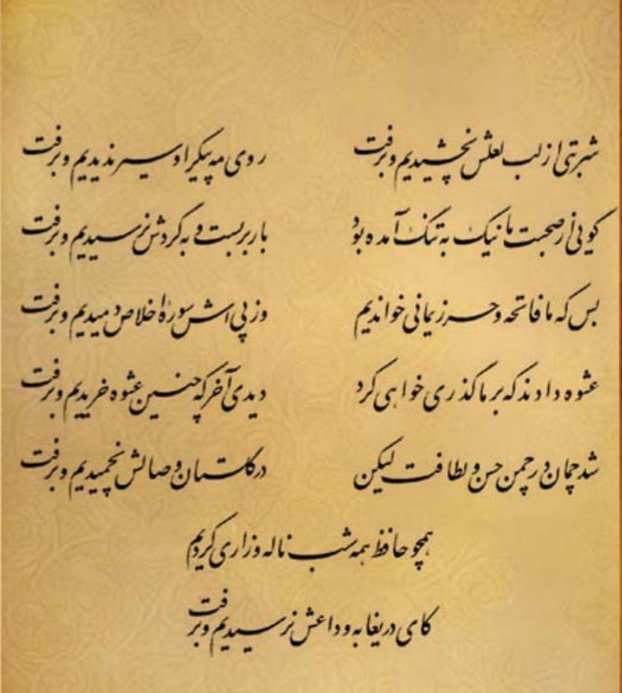 شربتی از لب لعلش نچشیدیم و برفت روی مه پیکر او سیر ندیدیم و برفت
گویی از صحبت ما نیک به تنگ آمده بود بار بربست و به گردش نرسیدیم و برفت
بس که ما فاتحه و حرز یمانی خواندیم وز پی اش سورهٔ اخلاص دمیدیم و برفت
عشوه دادند که بر ما گذری خواهی کرد دیدی آخر که چنین عشوه خریدیم و برفت
شد چمان در چمن حسن و لطافت لیکن در گلستان وصالش نچمیدیم و برفت
همچو حافظ همه شب ناله و زاری کردیم
کای دریغا به وداعش نرسیدیم و برفت